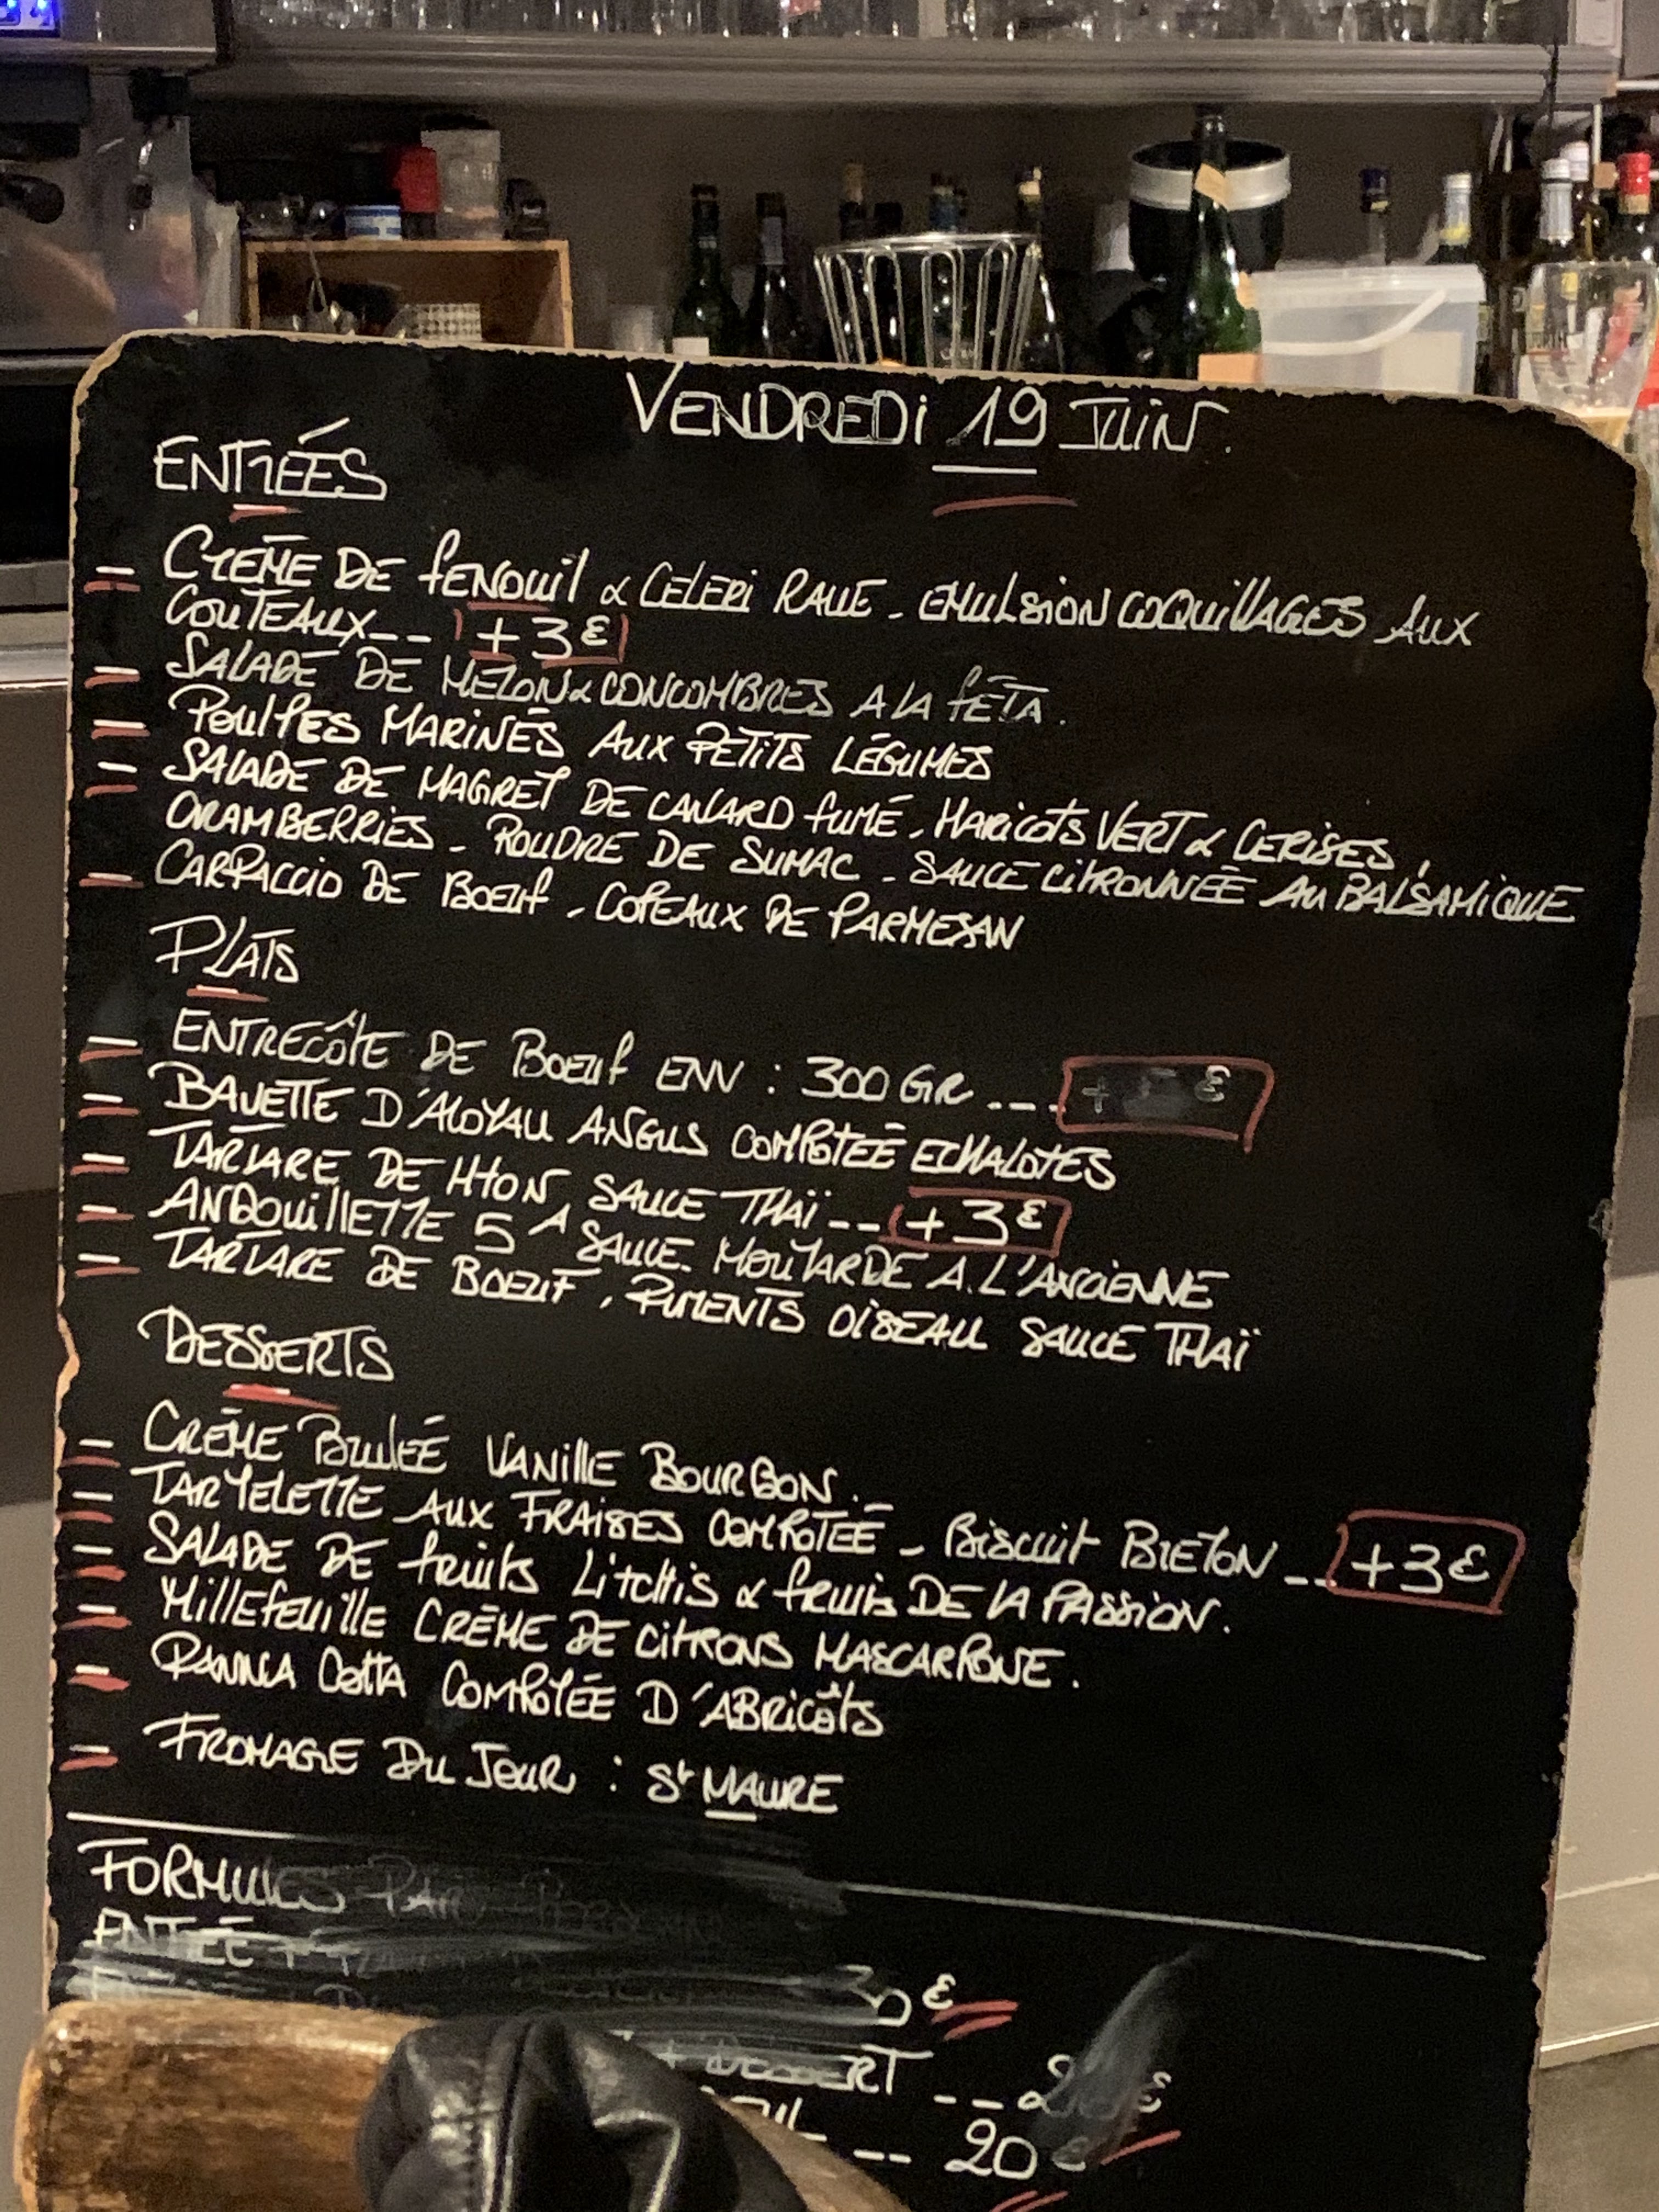 VENDREDI 19 JUIN.
ENTRÉES
– CRÈME DE FENOUIL & CELERI RAVE - EMULSION COQUILLAGES AUX
COUTEAUX -- +3€
– SALADE DE MELON & CONCOMBRES A LA FÊTA.
– POULPES MARINÉS AUX PETITS LÉGUMES
– SALADE DE MAGRET DE CANARD FUMÉ - HARICOTS VERT & CERISES,
CRAMBERRIES - POUDRE DE SUMAC - SAUCE CITRONNÉE AU BALSAMIQUE
– CARPACCIO DE BOEUF - COPEAUX DE PARMESAN
PLATS
– ENTRECÔTE DE BOEUF ENV : 300 GR --- + €
– BAVETTE D'ALOYAU ANGUS COMPOTÉE ECHALOTES
– TARTARE DE THON, SAUCE THAÏ --- +3€
– ANDOUILLETTE 5 A SAUCE MOUTARDE A L'ANCIENNE
– TARTARE DE BOEUF, PIMENTS OISEAU SAUCE THAÏ
DESSERTS
– CRÈME BRULEÉ VANILLE BOURBON.
– TARTELETTE AUX FRAISES COMPOTEÉ - BISCUIT BRETON --- +3€
– SALADE DE FRUITS LITCHIS & FRUIS DE LA PASSION.
– MILLEFEUILLE CRÈME DE CITRONS MASCARPONE.
– PANNA COTTA COMPOTÉE D'ABRICÔTS
– FROMAGE DU JOUR : St MAURE
FORMULES
ENTRÉE +
€
+ DESSERT -- €
-- 20€